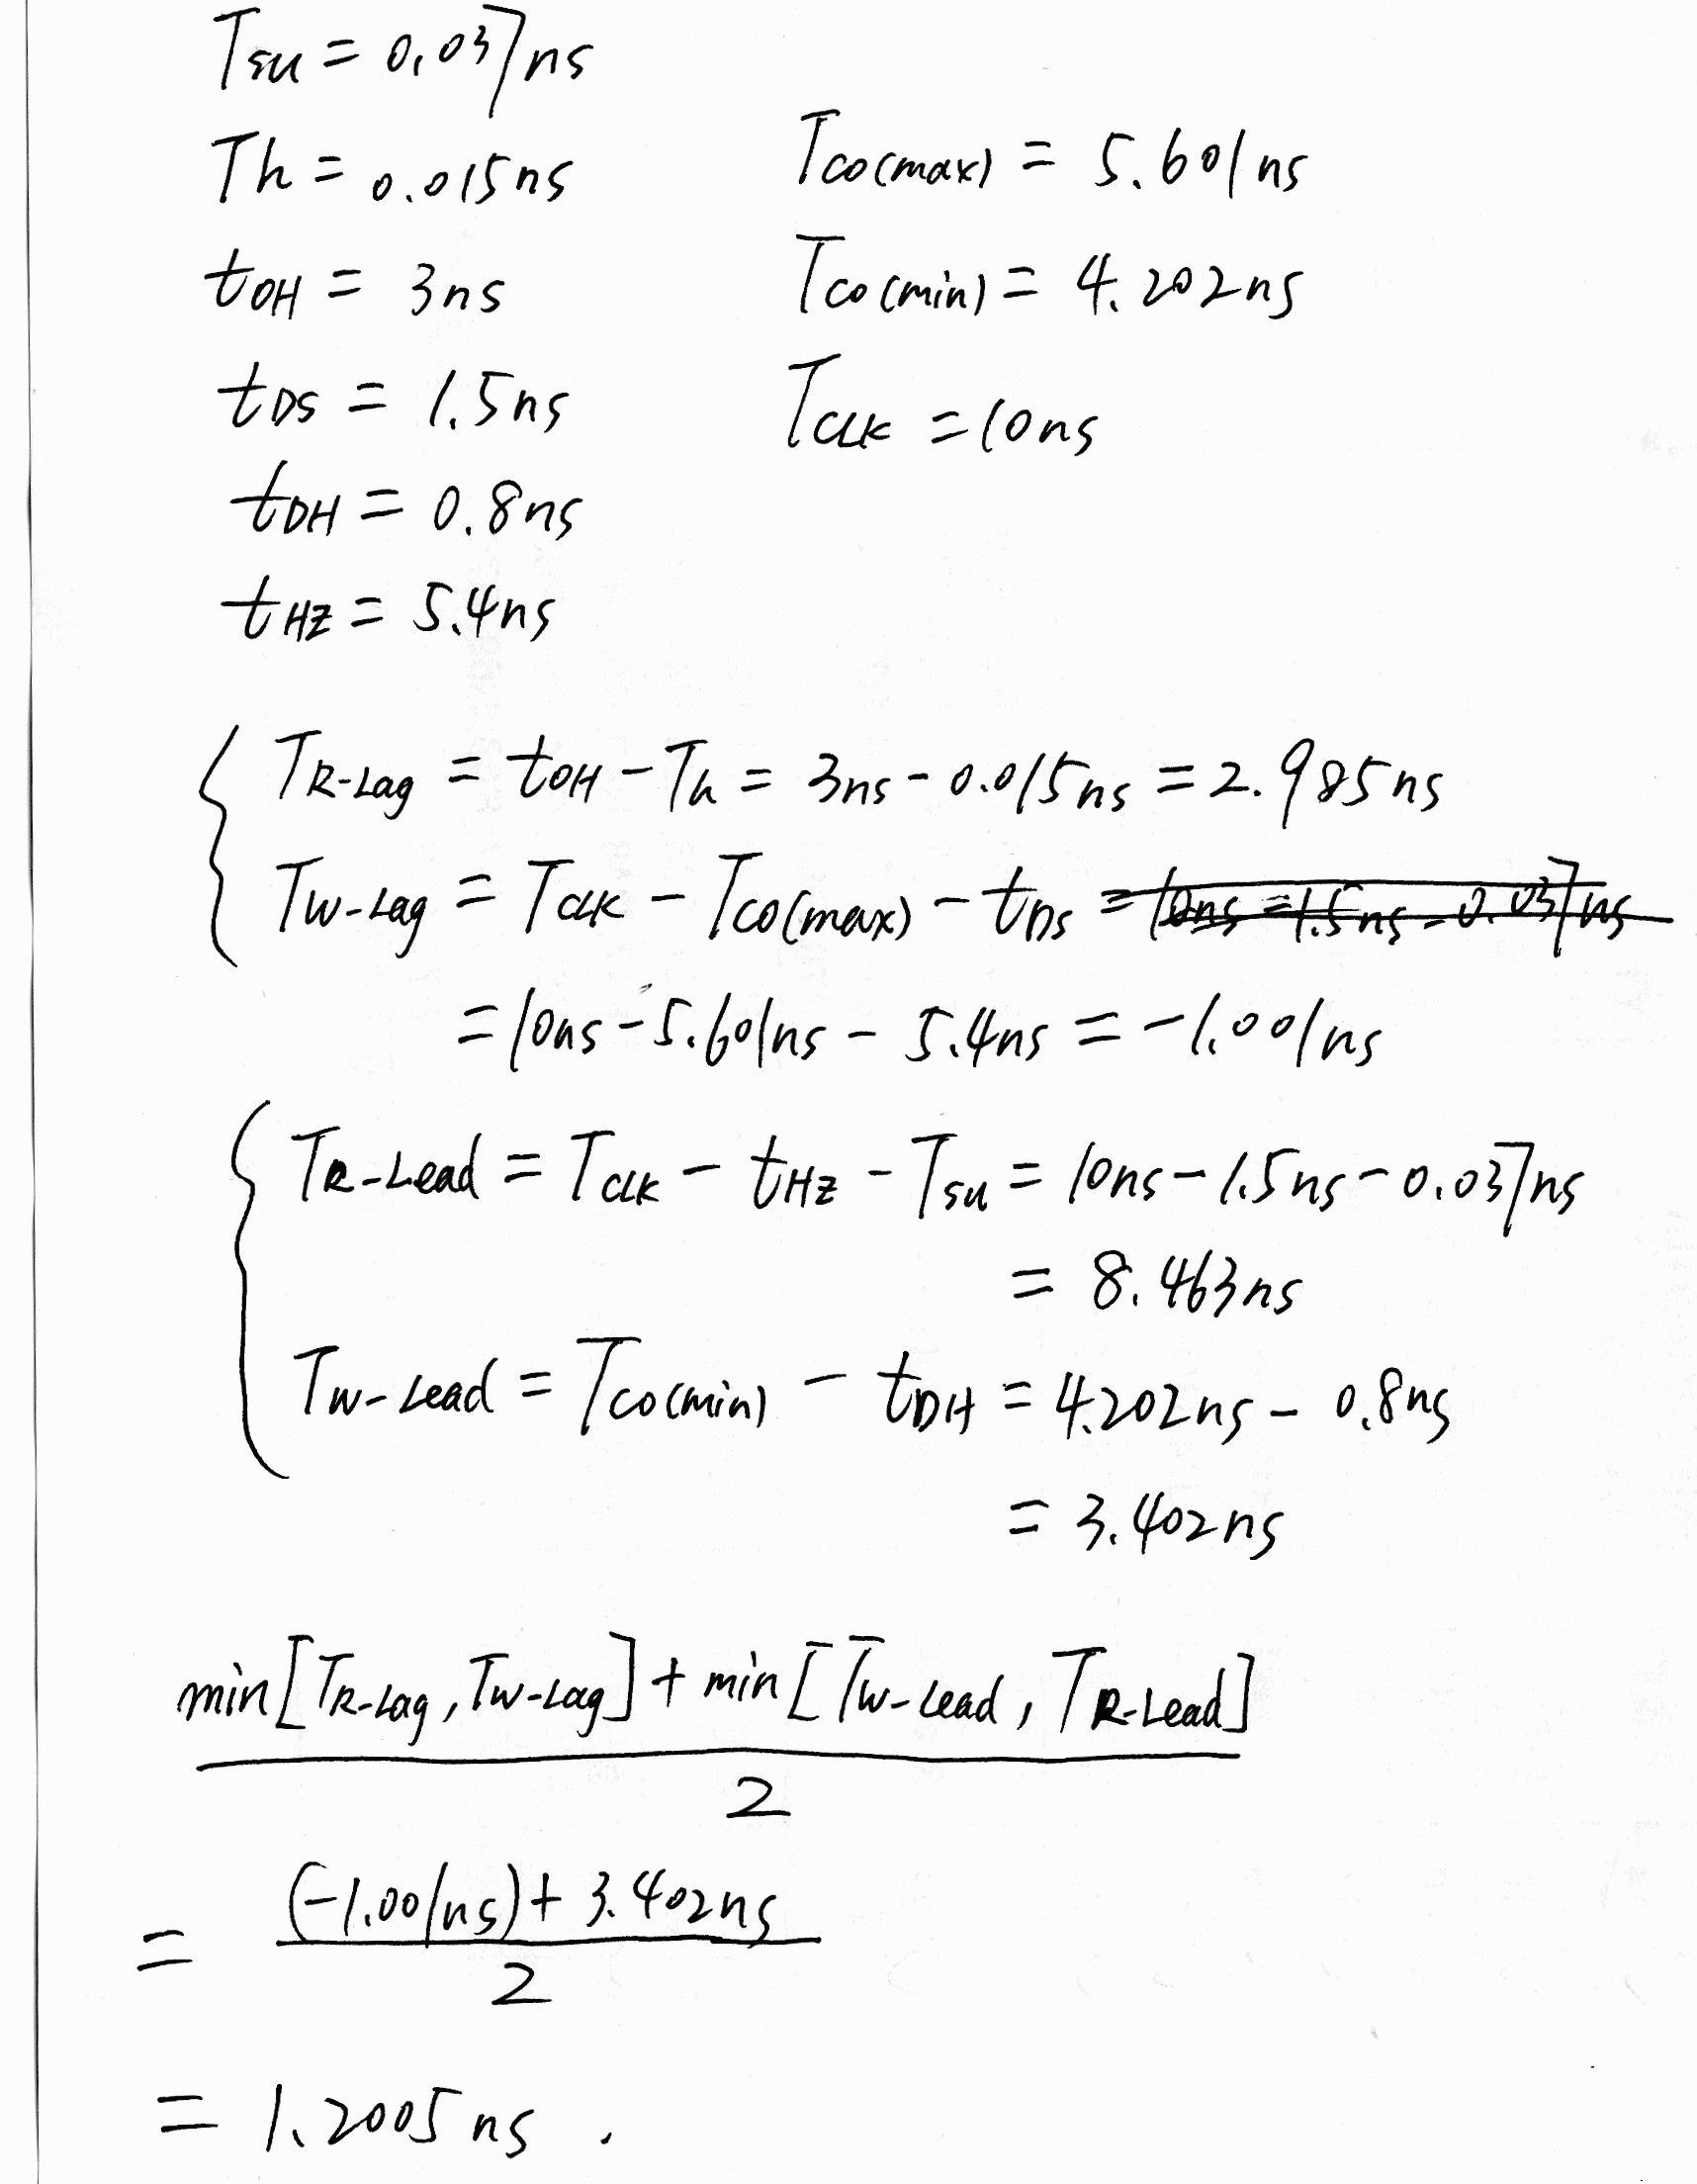 Tsu = 0.037ns
Th = 0.015ns
Tco(max) = 5.601ns
tOH = 3ns
Tco(min) = 4.202ns
tDS = 1.5ns
TCLK = 10ns
tDH = 0.8ns
tHZ = 5.4ns
TR-Lag = tOH - Th = 3ns - 0.015ns = 2.985ns
TW-Lag = TCLK - TCO(max) - tDS = 10ns - 1.5ns - 0.037ns
= 10ns - 5.601ns - 5.4ns = -1.001ns
TR-Lead = TCLK - tHZ - Tsu = 10ns - 1.5ns - 0.037ns
= 8.463ns
TW-Lead = TCO(min) - tDH = 4.202ns - 0.8ns
= 3.402ns
min[TR-Lag, TW-Lag] + min[TW-Lead, TR-Lead]
2
= (-1.001ns) + 3.402ns
2
= 1.2005ns.